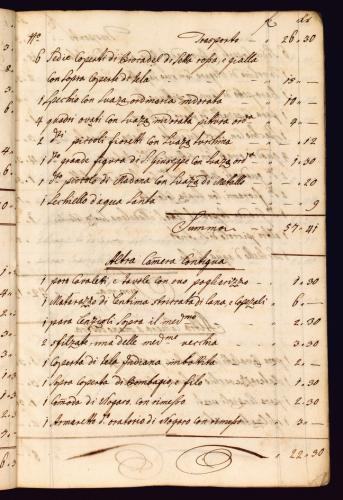 Trasporto 26.30
6 Sedie Coperti di Brocadel di Setta rossa, e gialla
con sopra Coperte di tela 18 —
1 Spechio con Suaza ordinaria indorata 10 —
4 quadri ovati con Suaza indorata pittura ordª 9 —
2 Dti piccoli fioretti con Suaza 12
1 Dto grande figura di S. Giuseppe con Suaza ordª 1.30
1 Dto piccolo di Madona con Suaza di intallo — .20
1 Sechiello d'aqua Santa — .9
Summa 57.41
Altra Camera Contigua
1 paro Cavaletti, e tavole con suo pagliarizzo 1.30
1 Matarazzo di Lana, e Capezali 6. —
1 paro Lenzioli Sopra il medmo 2.30
2 delle medmo vecchia 3.30
1 Coperta di tela Indiana imbottita 2. —
1 Sopra Coperta di Bombagio, e filo 1.30
1 Comoda di Nogara con rimesso 2.30
1 Armaretto dº oratorio di Nogara con rimesso 3. —
22.30